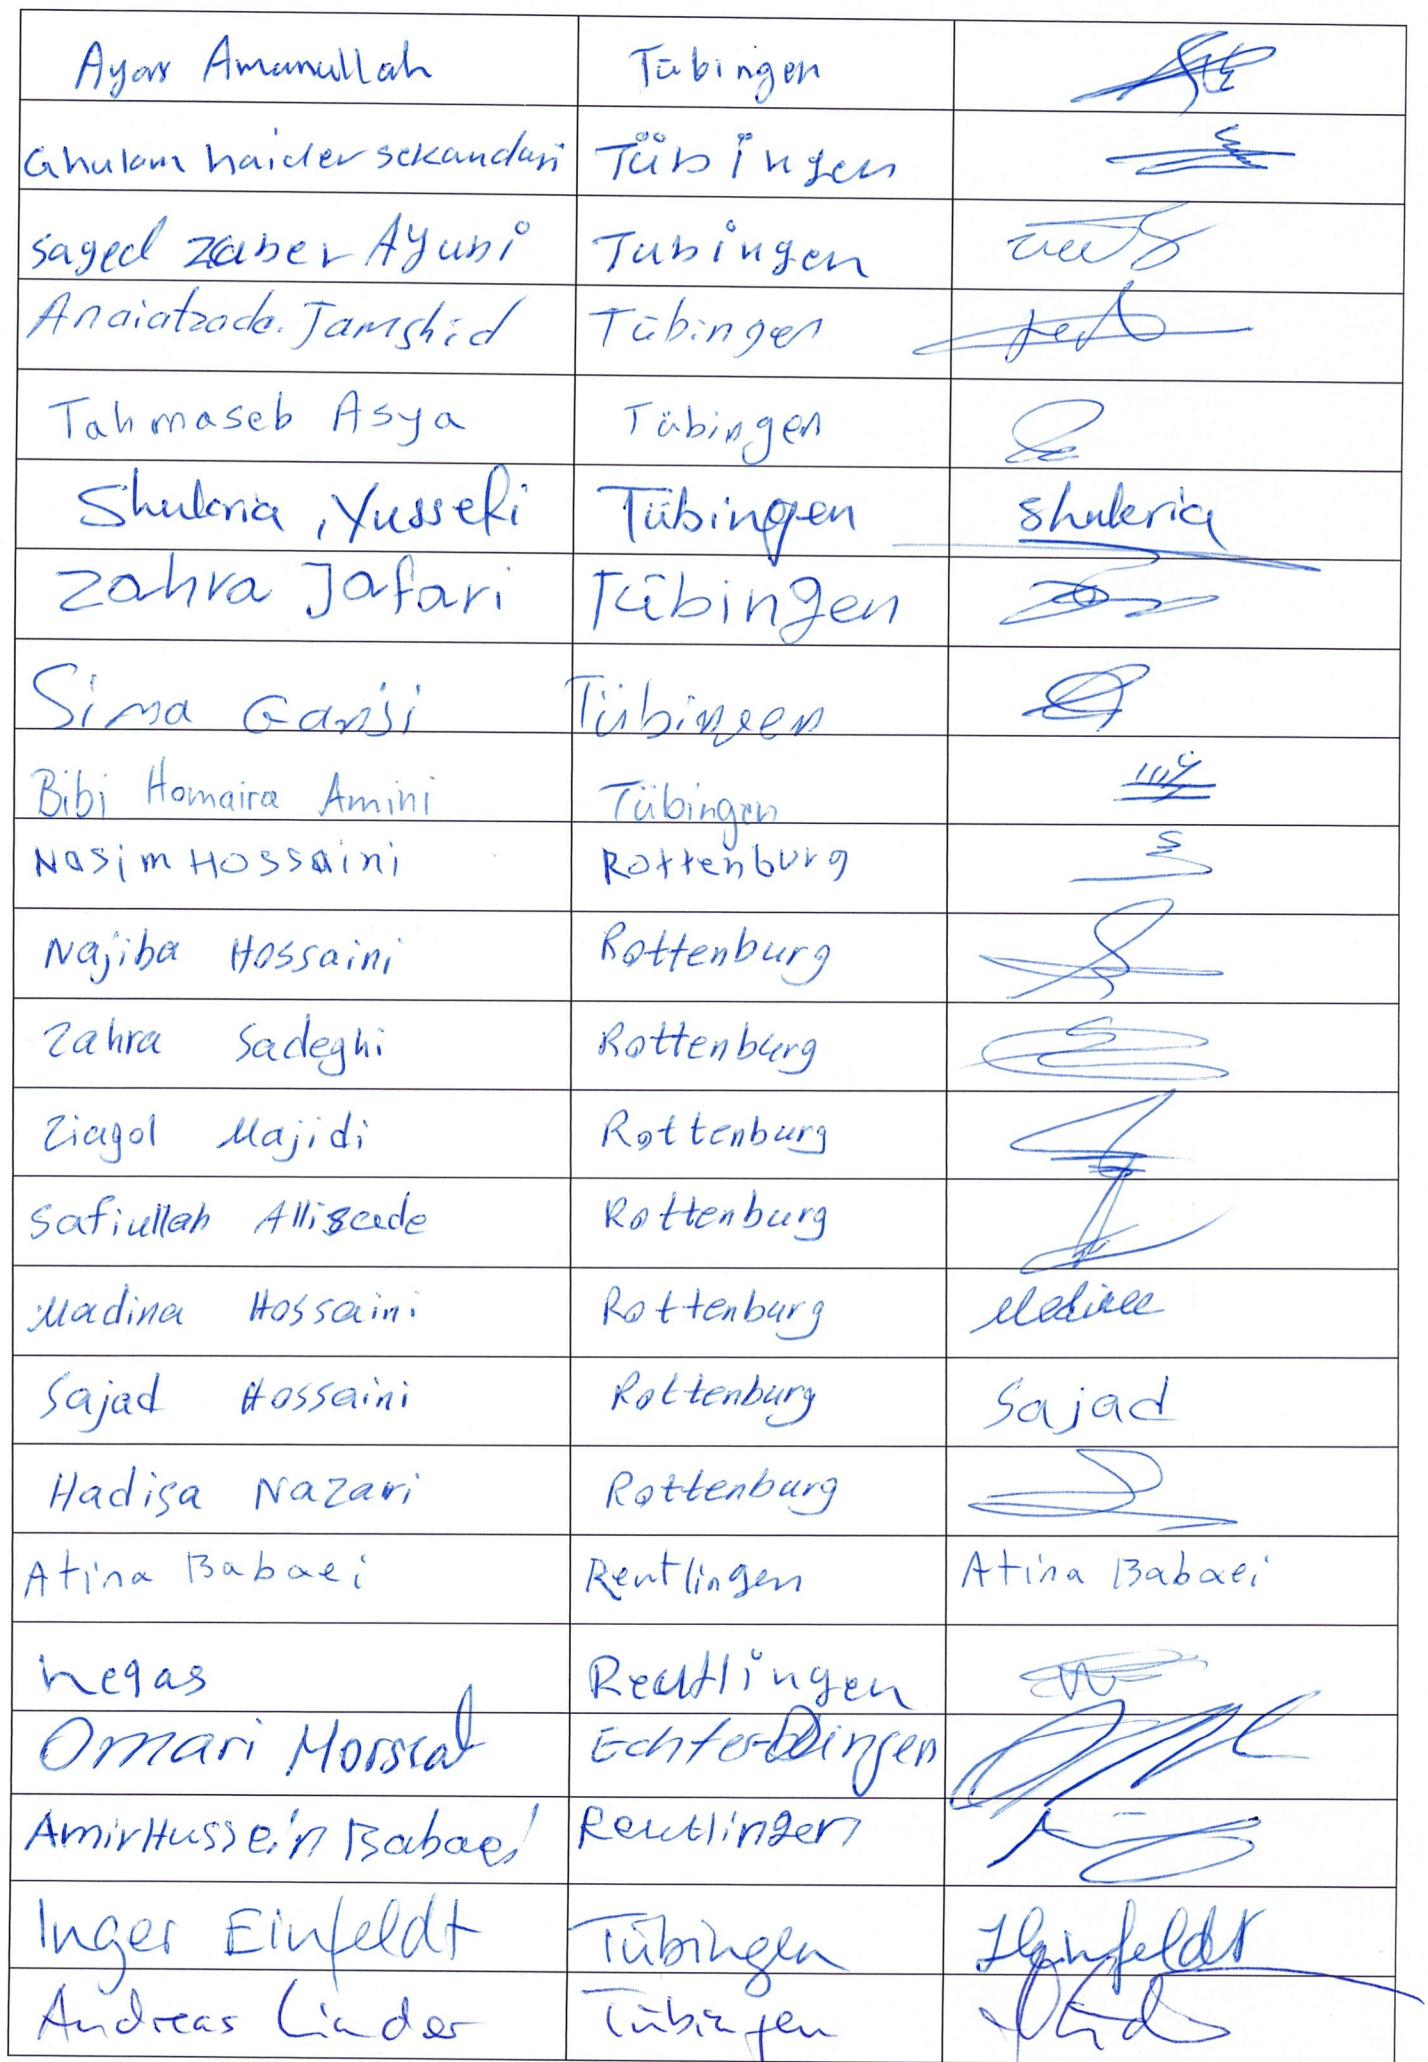 Ayar Amanullah Tübingen
Ghulam haider sekandari Tübingen
sayed zaber Ayubi Tubingen
Anaiatzada. Jamshid Tübingen
Tahmaseb Asya Tübingen
Shukria, Yussefi Tübingen shukria
Zahra Jafari Tübingen
Sima Ganji Tübingen
Bibi Homaira Amini Tübingen
Nasim Hossaini Rottenburg
Najiba Hossaini Rottenburg
Zahra Sadeghi Rottenburg
Ziagol Majidi Rottenburg
Safiullah Alliscede Rottenburg
Madina Hossaini Rottenburg Madina
Sajad Hossaini Rottenburg Sajad
Hadisa Nazari Rottenburg
Atina Babaei Reutlingen Atina Babaei
negas Reutlingen
Omari Morsal Echterdingen
AmirHussein Babaei Reutlingen
Inger Einfeldt Tübingen IEinfeldt
Andreas Linder Tübingen